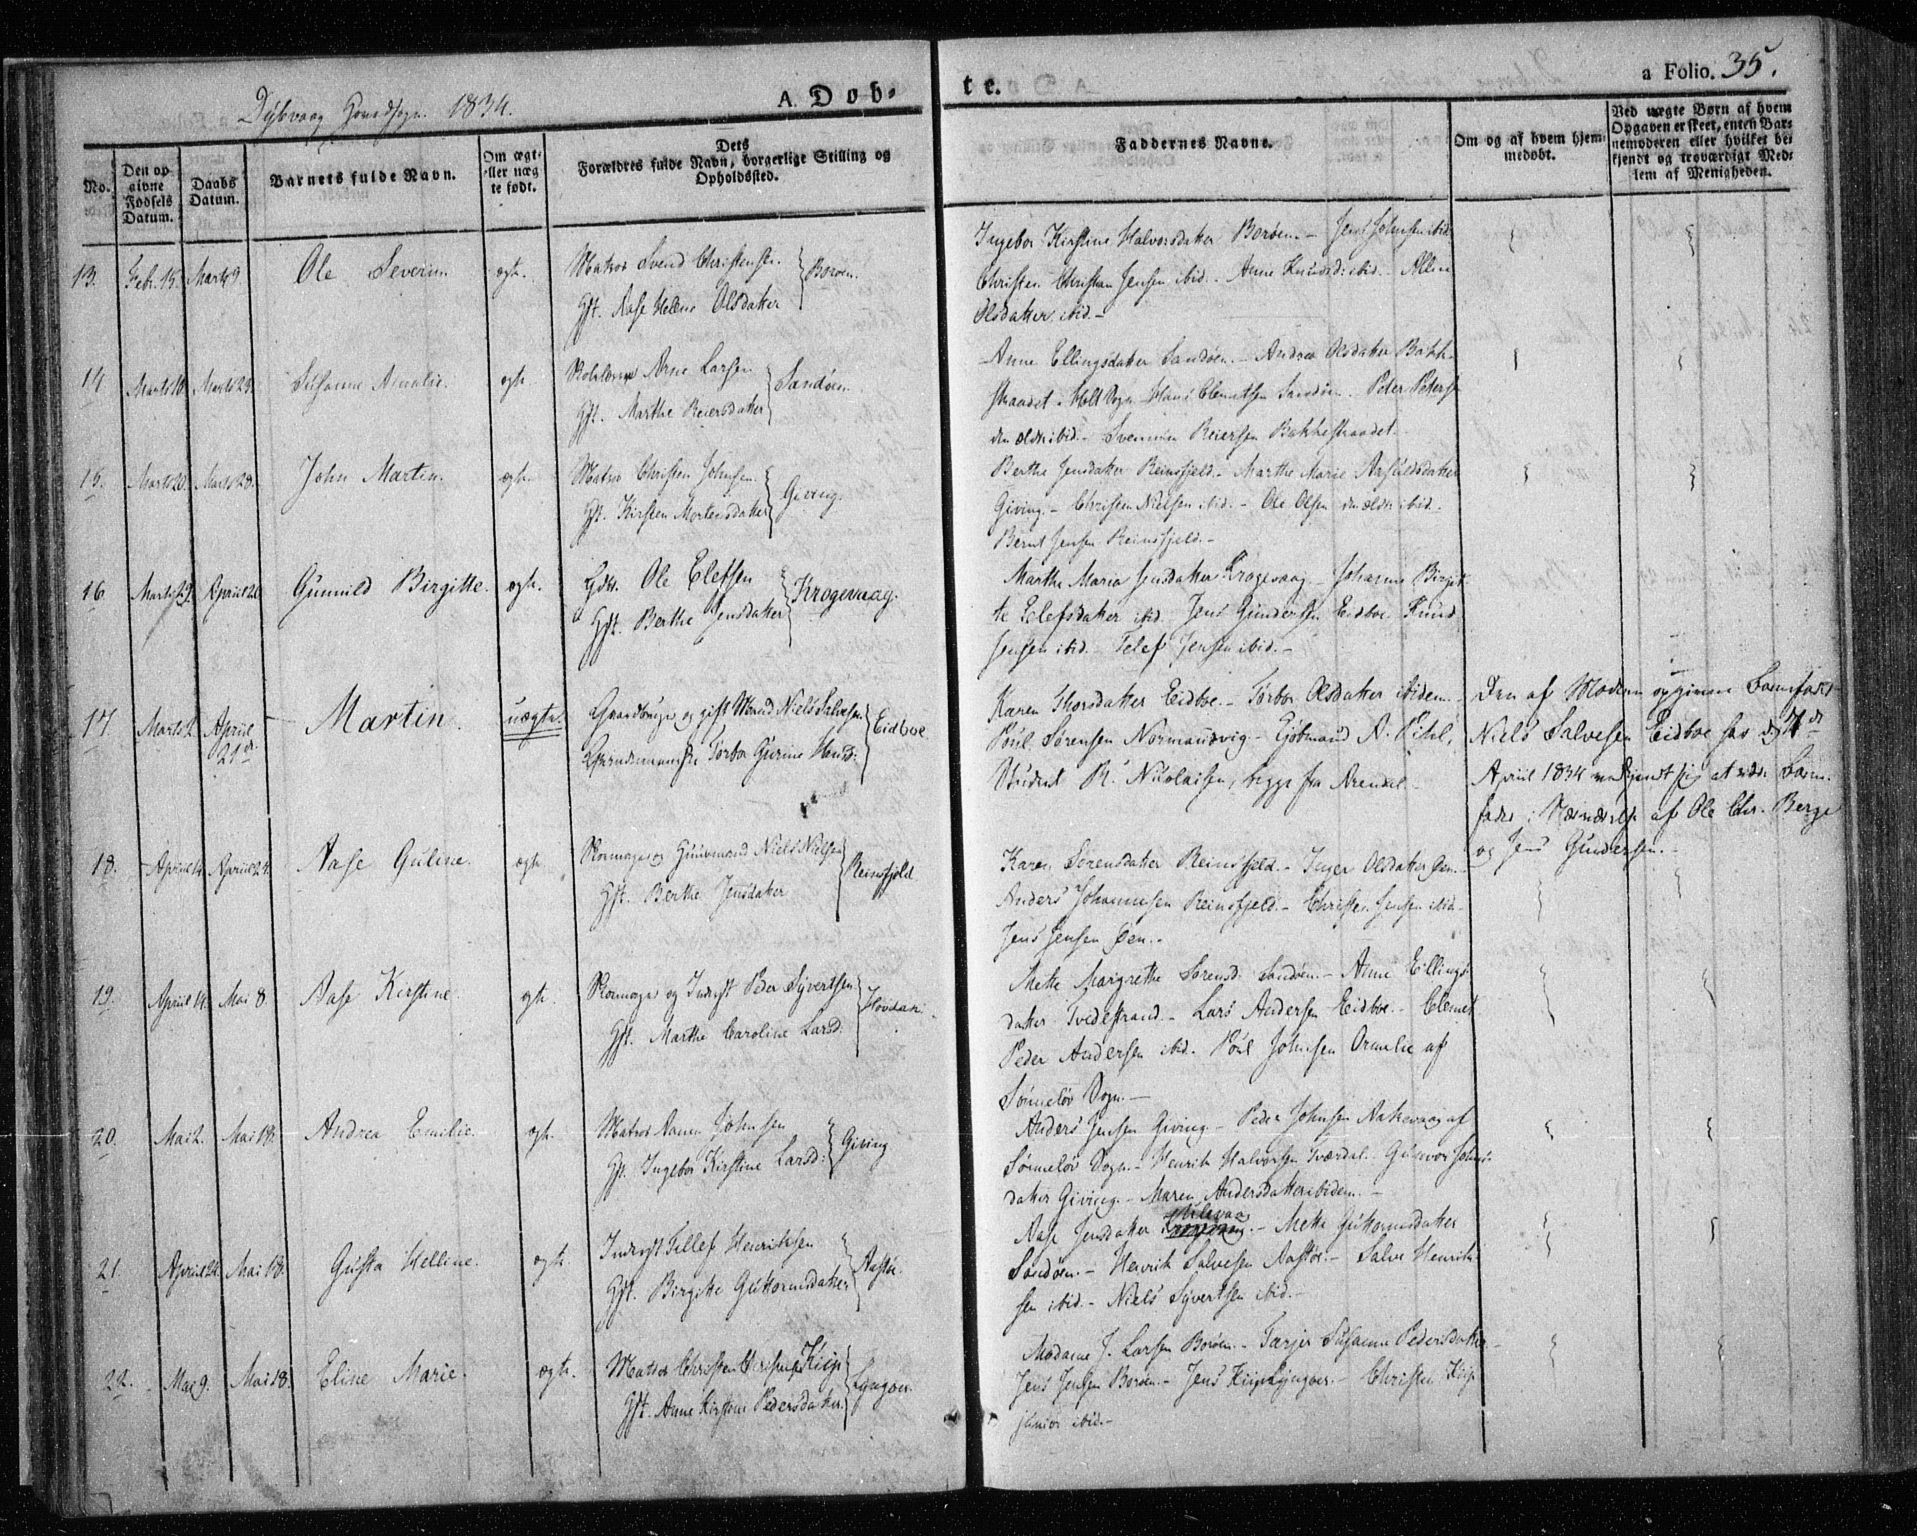 Dybvaag Hovedsogn 1834.
A. Døb-
te.
a Folio. 35.
No.
Den op
givne
Fødsels
Datum.
Daabs
Datum.
Barnets fulde Navn.
Om ægt-
eller uæg
te født.
Dets
Forældres fulde Navn, borgerlige Stilling og
Opholdssted.
Faddernes Navne.
Om og af hvem hjem-
medøbt.
Ved uægte Børn af hvem
Opgaven er skeet, enten Bar-
nemoderen eller hvilket be-
kjendt og troværdigt Med-
lem af Menigheden.
13. Febr. 15. Marts 9. Ole Severin. ægte. Matros Svend Christensen
Gft. Aase Helene Olsdatter } Borøen.
Ingebor Kirstine Halvorsdatter Borøen. - Jens Johnsen ibid.
Christen Christian Jensen ibid. - Anne Knudsd: ibid. - Ellen
Olsdatter ibid. -
14 Marts 10. Marts 23. Susanne Amalie. ægte. Arne Larsen
Gft. Marthe Reiersdatter } Sandøen.
Anne Ellingsdatter Sandøen. - Andrea Olsdatter Bakke-
straadet. Holt Sogn Hans Clemetsen Sandøen. Peter Peters
den ældre ibid. - Svennum Reiersen Bakkestraadet.
15. Marts 20. Marts 28. John Martin. ægte. Matros Christen Johnsen.
Gft. Kirsten Mortensdatter } Giving.
Berthe Jensdatter Reinsfjeld. - Marthe Marie Asfuldsdatter
Giving. - Christen Nielsen ibid. - Ole Olsen den ældre ibid.
Bernt Jensen Reinsfjeld. -
16 Marts 29. April 20. Gunnild Birgitte. ægte. Gdbr. Ole Elefsen
Gft. Berthe Jensdatter } Krogevaag.
Marthe Maria Jensdatter Krogevaag - Johanne Birgit-
te Elefsdatter ibid. Jens Gundersen Eidboe. Knud
Jensen ibid. Telef Jensen ibid. -
17 Marts 2. April
21de Martin. uægte. Gaardbruger og gift Mand Niels Salvesen
Torbor Gurine Hansd: } Eidboe
Karen Thorsdatter Eidboe. - Torbor Olsdatter ibidem.
Poul Sørensen Normandvig - Kjøbmand A. Pihl,
Student R. Nicolaisen, begge fra Arendal. -
Den af Moderen opgivne Barnefader
Niels Salvesen Eidboe har d. 21de
April 1834 vedkjendt sig at være Barne-
fader i Nærværelse af Ole Chr. Berge
og Jens Gundersen. -
18. April 14. April 24. Aase Guline. ægte. Skomager og Huusmand Niels Nielsen
Gft. Berthe Jensdatter } Reinsfjeld.
Karen Sørensdatter Reinsfjeld. - Inger Olsdatter Øen. -
Anders Johannesen Reinsfjeld. - Christen Jensen ibid. -
Jens Jensen Øen. -
19. April 14. Mai 8. Aase Kirstine. ægte. Skomager og Inderst Peder Syvertsen
Gft. Marthe Caroline Larsd. } Hovdan.
Mette Margrethe Sørensd. Sandøen. - Anne Ellings-
datter Tvedestrand. - Lars Andersen Eidboe. - Clemet
Peder Andersen ibid. Poul Johnsen Ormelie af
Sønneløv Sogn. -
20. Mai 2. Mai 18. Andrea Emilie. ægte. Matros Aanen Johnsen
Gft. Ingebor Kirstine Larsd: } Giving
Anders Jensen Giving - Peder Johnsen Aakevaag af
Sønneløv Sogn. - Henrik Halvorsen Tværdal. Gunvor Johns-
datter Giving. - Maren Andersdatter ibidem. -
21. April 24. Mai 18. Gusta Helline. ægte Inderst Tellef Henriksen
Gft. Birgitte Guttormsdatter } Aasto.
Aase Jensdatter - Mette Guttormsdatter
Sandøen. - Henrik Salvesen Aastøe. - Salve Henrik-
sen ibid. - Niels Syvertsen ibid. -
22. Mai 9. Mai 18. Eline Marie. ægte. Matros Christen Kiip
Gft. Anne Kirstine Pedersdatter. } Lyngøer.
Madame J. Larsen Borøen. - Tarjer Susanne Pedersdatter. -
Jens Jensen Borøen. - Jens Kiip Lyngøer. - Christen Kiip
junior ibid. -